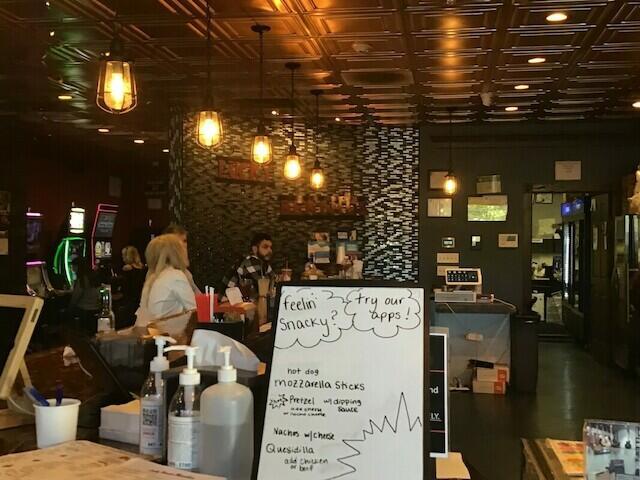 feelin'
snacky?
try our
apps!
hot dog
mozzarella sticks
Pretzel w/dipping
sauce
Nachos w/cheese
Quesidilla
add chicken
or beef